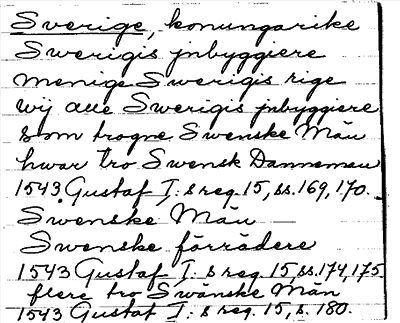 Sverige, konungarike
Swerigis jnbyggiere
menige Swerigis rige
wij alle Swerigis jnbyggiere
som trogne Swenske Män
hwar tro Swensk Danneman
1543 Gustaf I: s reg. 15, ss. 169, 170.
Swenske Män —
Swenske förrädere
1543 Gustaf I: s reg. 15, ss. 174, 175
flere tro Swänske Män
1543 Gustaf I: s reg. 15, s. 180.